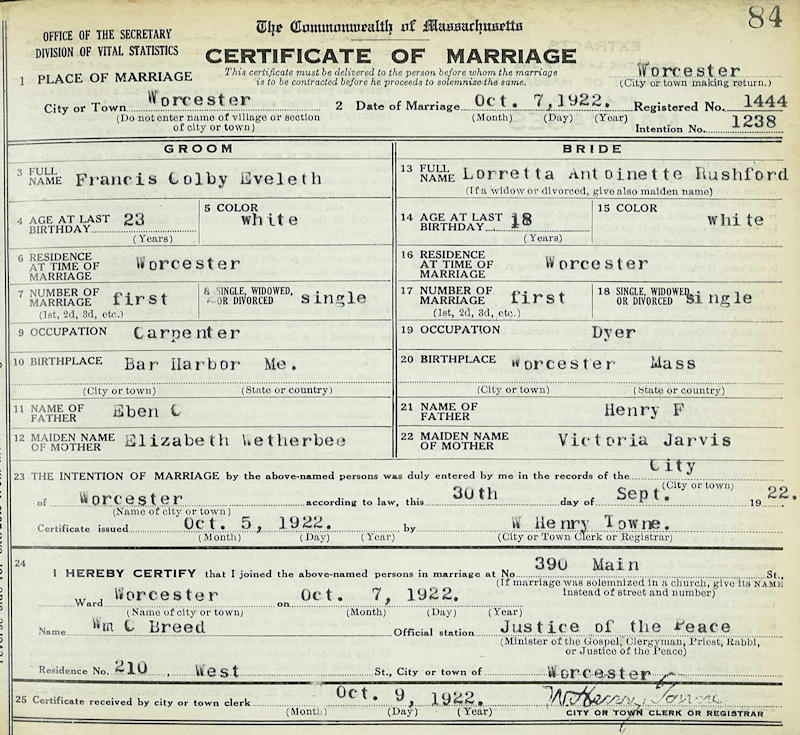 84
OFFICE OF THE SECRETARY
DIVISION OF VITAL STATISTICS
The Commonwealth of Massachusetts
CERTIFICATE OF MARRIAGE
This certificate must be delivered to the person before whom the marriage
is to be contracted before he proceeds to solemnize the same.
Worcester
(City or town making return.)
1 PLACE OF MARRIAGE
City or Town Worcester
(Do not enter name of village or section
of city or town)
2 Date of Marriage Oct. 7, 1922.
(Month) (Day) (Year)
Registered No. 1444
Intention No. 1238
GROOM
3 FULL NAME Francis Colby Eveleth
4 AGE AT LAST BIRTHDAY 23
(Years)
5 COLOR
white
6 RESIDENCE AT TIME OF MARRIAGE Worcester
7 NUMBER OF MARRIAGE first
(1st, 2d, 3d, etc.)
8 SINGLE, WIDOWED, OR DIVORCED single
9 OCCUPATION Carpenter
10 BIRTHPLACE Bar Harbor Me.
(City or town) (State or country)
11 NAME OF FATHER Eben C
12 MAIDEN NAME OF MOTHER Elizabeth Wetherbee
BRIDE
13 FULL NAME Lorretta Antoinette Rushford
(If a widow or divorced, give also maiden name)
14 AGE AT LAST BIRTHDAY 18
(Years)
15 COLOR
white
16 RESIDENCE AT TIME OF MARRIAGE Worcester
17 NUMBER OF MARRIAGE first
(1st, 2d, 3d, etc.)
18 SINGLE, WIDOWED, OR DIVORCED single
19 OCCUPATION Dyer
20 BIRTHPLACE Worcester Mass
(City or town) (State or country)
21 NAME OF FATHER Henry F
22 MAIDEN NAME OF MOTHER Victoria Jarvis
23 THE INTENTION OF MARRIAGE by the above-named persons was duly entered by me in the records of the City
(City or town)
of Worcester according to law, this 30th day of Sept. 1922.
(Name of city or town)
Certificate issued Oct. 5, 1922. by W Henry Towne.
(Month) (Day) (Year) (City or Town Clerk or Registrar)
24
I HEREBY CERTIFY that I joined the above-named persons in marriage at No 390 Main St.,
(If marriage was solemnized in a church, give its NAME
instead of street and number)
Ward Worcester on Oct. 7, 1922.
(Name of city or town) (Month) (Day) (Year)
Name Wm C Breed Official station Justice of the Peace
(Minister of the Gospel, Clergyman, Priest, Rabbi,
or Justice of the Peace)
Residence No. 210, West St., City or town of Worcester
25 Certificate received by city or town clerk Oct. 9, 1922. W. Henry Towne
(Month) (Day) (Year) CITY OR TOWN CLERK OR REGISTRAR